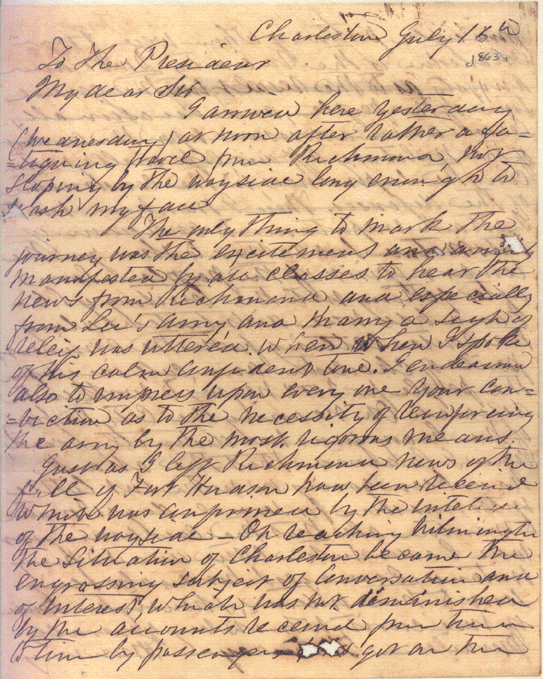 Charleston July 16th
1863.
To The President
My dear Sir
I arrived here yesterday
(Wednesday) at noon after rather a fa-
-tiguing travel from Richmond not
stoping by the wayside long enough to
wash my face
The only thing to mark the
journey was the excitement and anxiety
manifested by all classes to hear the
news from Richmond and especially
from Lee's army and many a sigh of
relief was uttered when I spoke
of his calm confident tone. I endeavored
also to impress upon every one your con-
-viction as to the necessity of reinforcing
the army by the most vigorous means.
Just as I left Richmond news of the
fall of Fort Hudson had been received
which was confirmed by the intelligence
of the wayside – On reaching Wilmington
the situation of Charleston became the
engrossing subject of Conversation and
of Interest, which was not diminished
by the accounts received from time
to time by passengers got on the